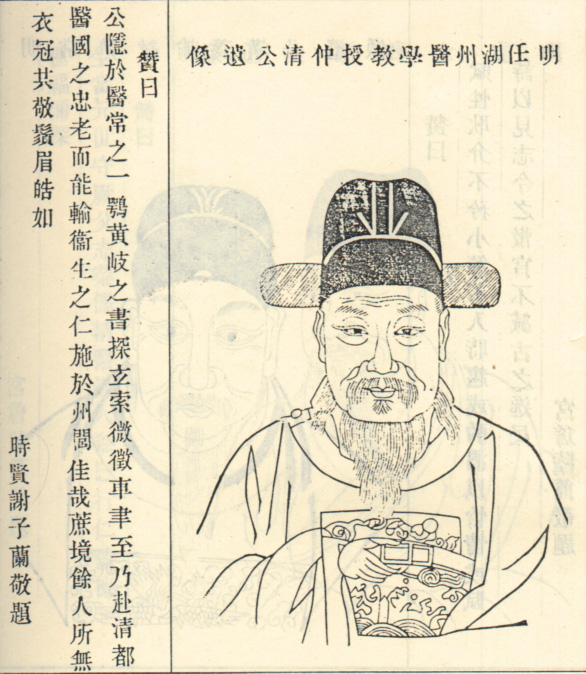 明任湖州醫學教授仲清公遺像
贊曰
公隱於醫常之一鶚黄岐之書探玄索微徵車聿至乃赴清都
醫國之忠老而能輸衞生之仁施於州閭佳哉蔗境餘人所無
衣冠共敬鬚眉皓如
時賢謝子蘭敬題